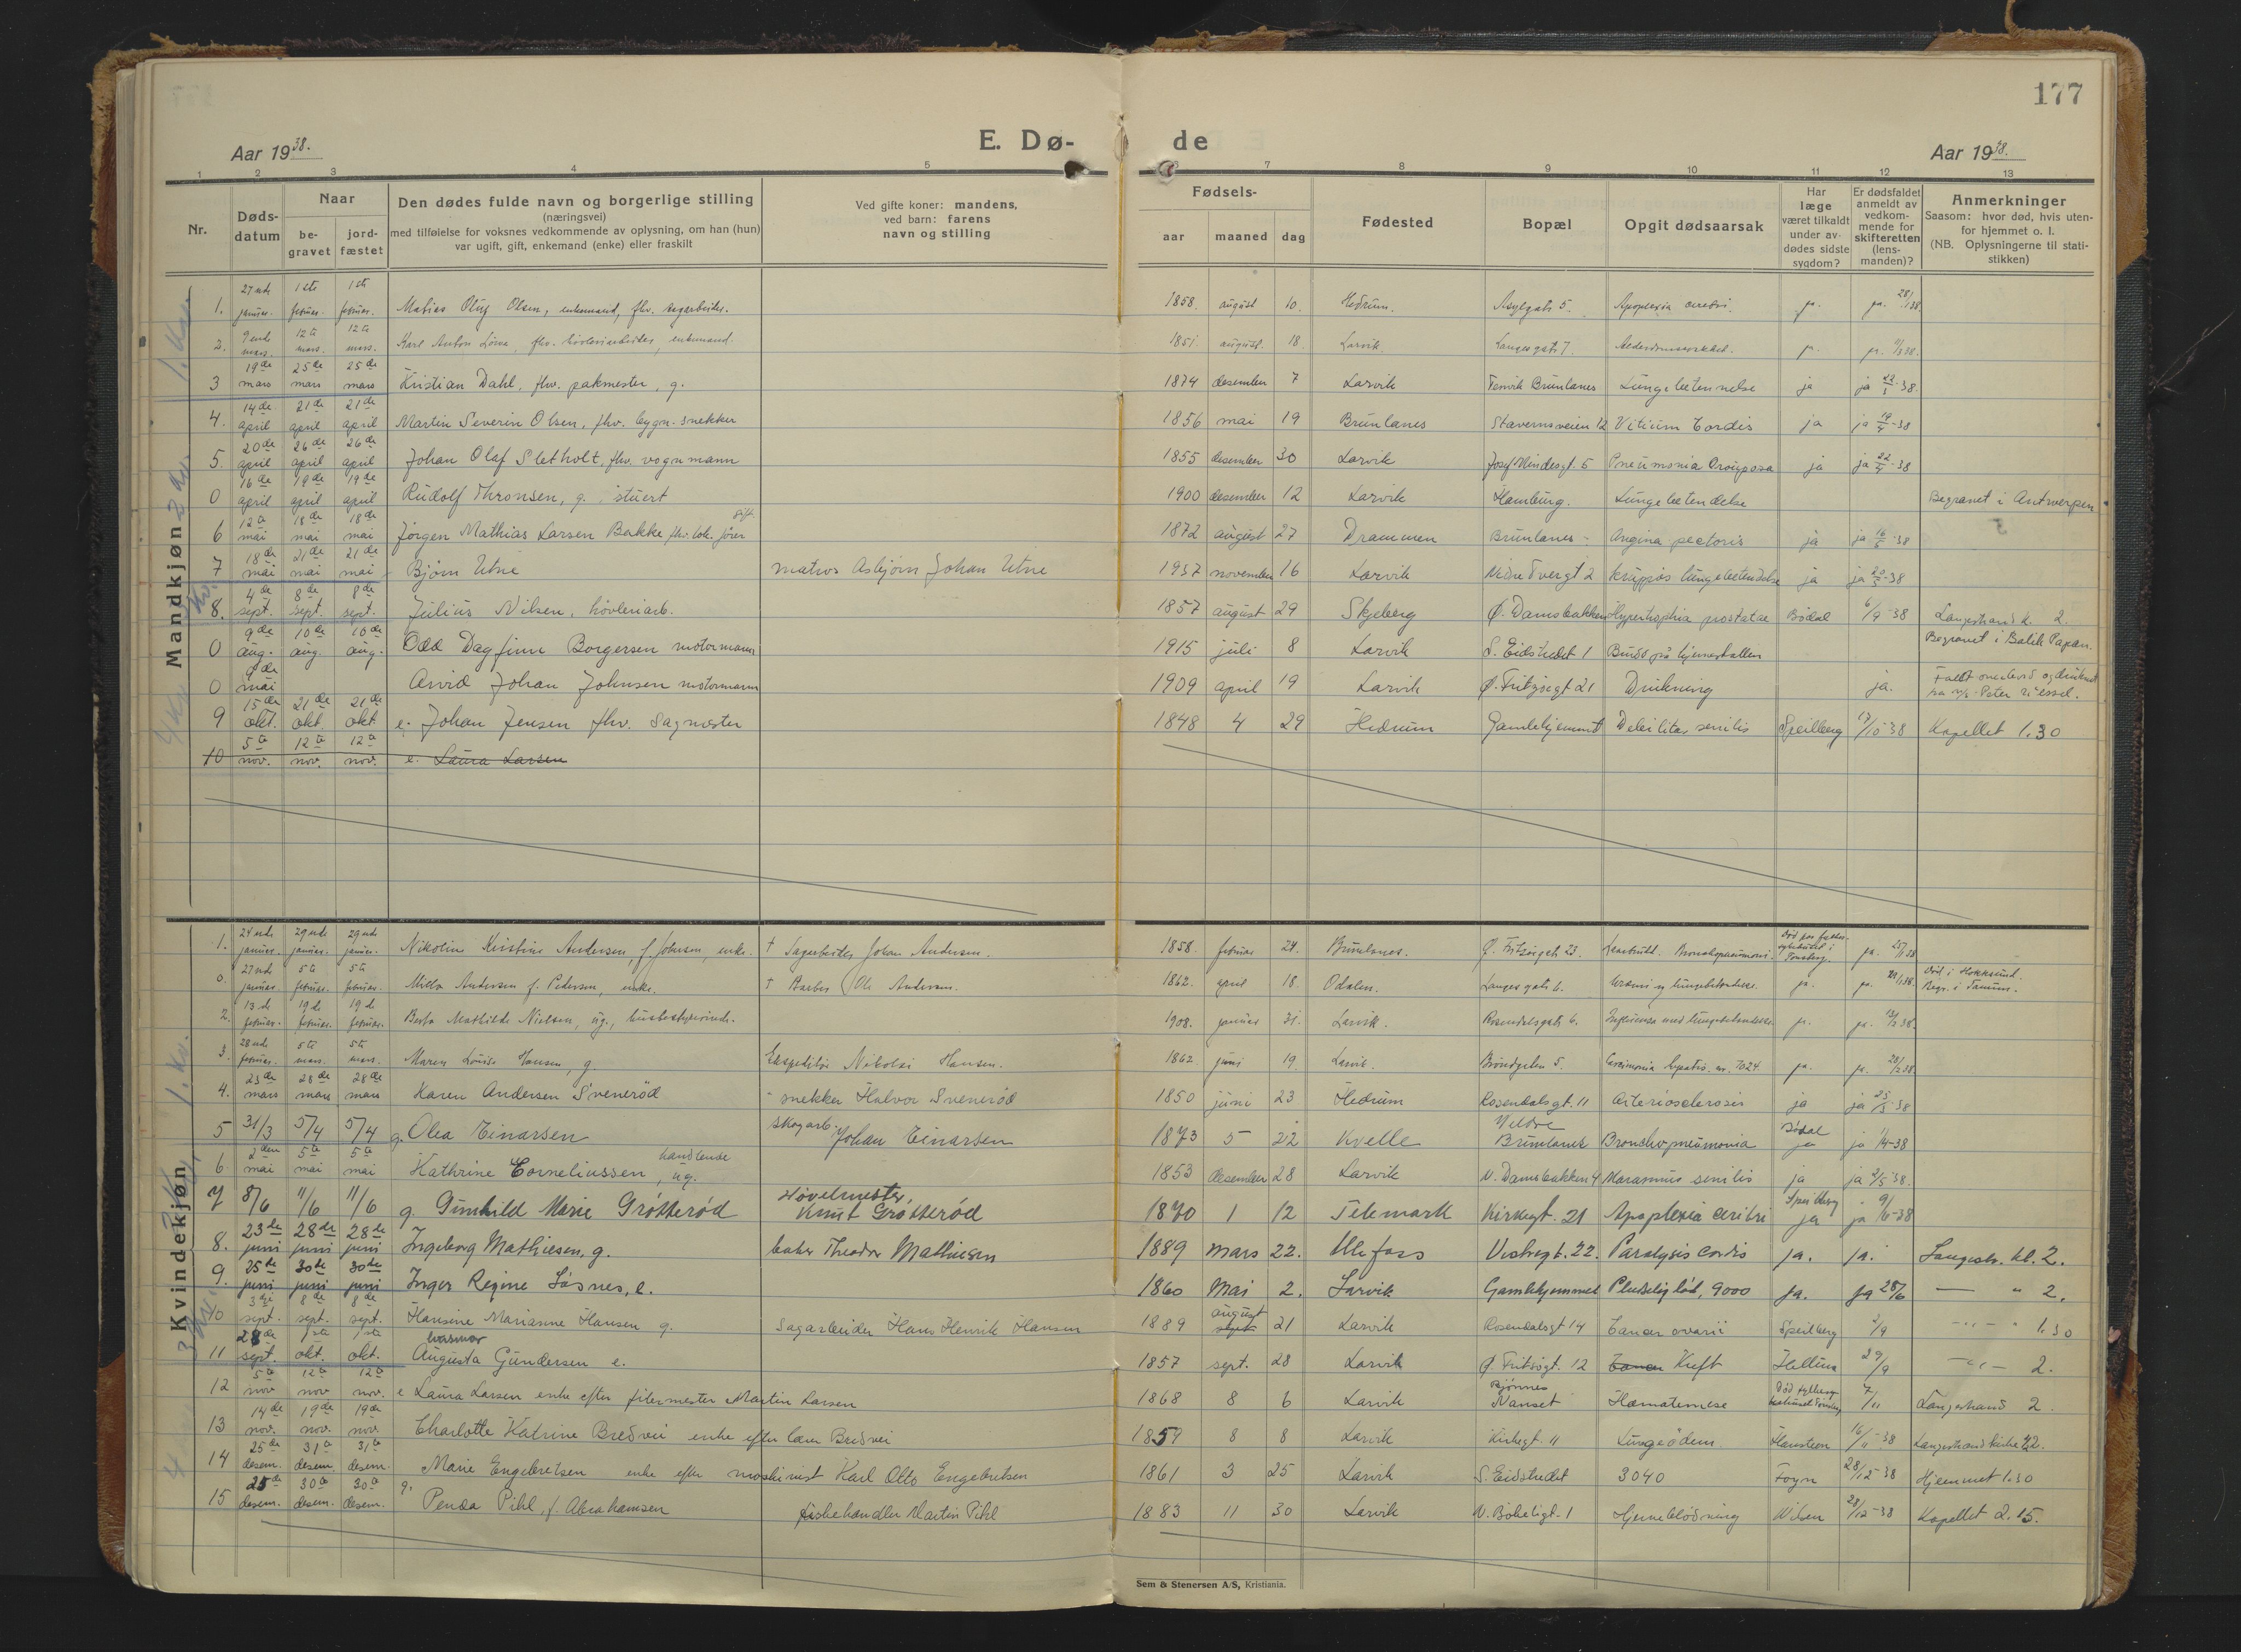 177
Aar 1938.
E. Dø-
de
Aar 1938.
1 2 3 4 5 6 7 8 9 10 11 12 13
Nr. Døds-datum Naar be-gravet jord-fæstet Den dødes fulde navn og borgerlige stilling (næringsvei) med tilføielse for voksnes vedkommende av oplysning, om han (hun) var ugift, gift, enkemand (enke) eller fraskilt Ved gifte koner: mandens, ved barn: farens navn og stilling Fødsels- aar maaned dag Fødested Bopæl Opgit dødsaarsak Har læge været tilkaldt under av-dødes sidste sygdom? Er dødsfaldet anmeldt av vedkom-mende for skifteretten (lens-manden)? Anmerkninger Saasom: hvor død, hvis uten-for hjemmet o. l. (NB. Oplysningerne til stati-stikken)
Mandkjøn
1. 27nde januar. 1ste februar. 1ste februar. Matias Oluf Olsen, enkemand, fhv. sagarbeider. 1858. august 10. Hedrum. Asylgata 5. Apoplexia cerebri. ja. ja. 28/1 38.
2. 9nde mars. 12te mars. 12te mars. Karl Anton fhv. høvleriarbeider, enkemand. 1851. august 18. Larvik. Langesgate 7. Alderdomssvakhet. ja. ja. 38.
3 19de mars 25de mars 25de mars Kristian Dahl, fhv. pakmester, g. 1874 desember 7 Larvik Brunlanes Lungebetennelse ja ja 38.
4. 14de april 21de april 21de april Martin Severin Olsen, fhv. bygn. snekker 1856 mai 19 Brunlanes Stavernsveien 12 Vitium Cordis ja ja 19/4-38
5. 20de april 26de april 26de april Johan Olaf Sletholt, fhv. vognmann 1855 desember 30 Larvik Josef Mindesgt. 5 Pneumonia Crouposa ja ja 22/4-38
0 16de april 19de april 19de april Rudolf Thronsen, g. stuert 1900 desember 12 Larvik Hamburg. Lungebetendelse Begravet i Antwerpen
6 12te mai 18de mai 18de mai Jørgen Mathias Larsen Bakke fhv. lok. fører gift 1872 august 27 Drammen Brunlanes - Angina pectoris ja ja 16/5-38
7 18de mai 21de mai 21de mai Bjørn Utne matros Asbjørn Johan Utne 1937 november 16 Larvik Nedre Tvergt 2 krupøs lungebetendelse ja ja 20/5-38
8. 4de sept. 8de sept. 8de sept. Julius Nilsen, høvleriarb. 1857 august 29 Skjeberg Ø. Damsbakken Hypertrophia prostatae Bødal 6/9-38 Langestrand k. 2.
0 9de aug. 10de aug. 10de aug. Odd Dagfinn Borgersen motormann 1915 juli 8 Larvik S. Eidstredet 1 Brudd på hjerneskallen Begravet i Balik Papan.
0 9de mai Arvid Johan Johnsen motormann 1909 april 19 Larvik Ø. Fritzøegt 21 Drukning ja. Faldt overbord og druknet fra m/s Peter
9 15de okt. 21de okt. 21de okt. e. Johan Jensen fhv. Sagmester 1848 4 29 Hedrum Gamlehjemmet Debilitas senilis Speilberg 17/10-38 Kapellet 1.30
10 5te nov. 12te nov. 12te nov. e. Laura Larsen
Kvindekjøn
1. 24nde januar. 29nde januar. 29nde januar. Nikoline Kristine Andersen, f. Johnsen, enke. † Sagarbeider Johan Andersen. 1858. februar 24. Brunlanes. Ø. Fritzøegate 23. Bronchopneumoni. Død paa sykehuset i Tønsberg. ja. 25/1 38
0. 27nde januar 5te februar. 5te februar. Milla Andersen f. Pedersen, enke. † Barber Ole Andersen. 1862. april 18. Odalen. Langesgate 6. Uræmi og lungebetendelse. ja. ja. 29/1 38. Død i Hokksund. Begr. i Tanum.
2. 13de februar. 19de februar. 19de februar. Berta Mathilde Nielsen, ug., husbestyrerinde. 1908. januar 31. Larvik. Rosendalsgate 6. Influensa med lungebetendelse. ja. ja. 38.
3. 28nde februar. 5te mars. 5te mars. Maren Louise Hansen, g. Ekspeditør Nikolai Hansen. 1862. juni 19. Larvik. 5. nr. 7024. ja. ja. 28/2 38
4. 23de mars 28de mars 28de mars Karen Andersen Svenerød snekker Halvor Svenerød 1850 juni 23 Hedrum Rosendalsgt. 11 Arteriosclerosis ja ja 25/3-38
5 31/3 5/4 5/4 g. Olea Einarsen skogarb. Johan Einarsen 1873 5 22 Kvelle Brunlanes Bronchopneumonia Bødal ja ja 1/4-38
6. 2den mai 5te mai 5te mai Kathrine Corneliussen, handlende ug. 1853 desember 28 Larvik N. Damsbakken 4 Marasmus senilis ja ja 2/5-38.
7 8/6 11/6 11/6 g. Gunhild Marie Grøtterød Høvelmester, Knut Grøtterød 1870 1 12 Telemark Kirkegt. 21 Apoplexia ceribri Speilberg ja ja 9/6-38
8. 23de juni 28de juni 28de juni Ingeborg Mathiesen, g. baker Theodor Mathiesen 1889 Mars 22. Ulefoss Vestregt. 22. Paralysis Cordis ja. ja. Langestr. kl. 2.
9. 25de juni 30de juni 30de juni Inger Regine Løsnes, e. 1860 Mai 2. Larvik Gamlehjemmet Plutselig død, 9000 ja. ja 28/6 — " 2.
10 3die sept. 8de sept. 8de sept. Hansine Marianne Hansen g. Sagarbeider Hans Henrik Hansen 1889 august sept 21 Larvik Rosendalsgt 14 Cancer ovarii Speilberg /9 -"- 1.30
11 28de sept. 1ste okt. 1ste okt. Augusta Gundersen e. 1857 sept. 28 Larvik Ø. Fritzøgt. 12 Cancer Kreft 29/9 -"- 2.
12 5te nov 12te nov 12te nov. e Laura Larsen enke efter filermester Martin Larsen 1868 8 6 Larvik Bjønnes Nanset Hæmatemese 7/11 Langestrand 2.
13 14de nov. 19de nov. 19de nov. Charlotte Katrine Bredvei enke efter lærer Bredvei 1859 8 8 Larvik Kirkegt. 11 Lungeødem Hansteen 16/11-38 Langestrand kirke 2.
14 25de desem. 31te desem. 31te desem. Marie Engebretsen enke efter maskinist Karl Otto Engebretsen 1861 3 25 Larvik S. Eidstredet 3040 Foyn 28/12-38 Hjemmet 1.30
15 25de desem. 30te desem. 30te desem. g. Penda Pihl, f. Abrahamsen fiskehandler Martin Pihl 1883 11 30 Larvik N. Bøkeligt. 1 Hjerneblødning Nilsen 28/12-38 Kapellet 2.15.
Sem & Stenersen A/S, Kristiania.